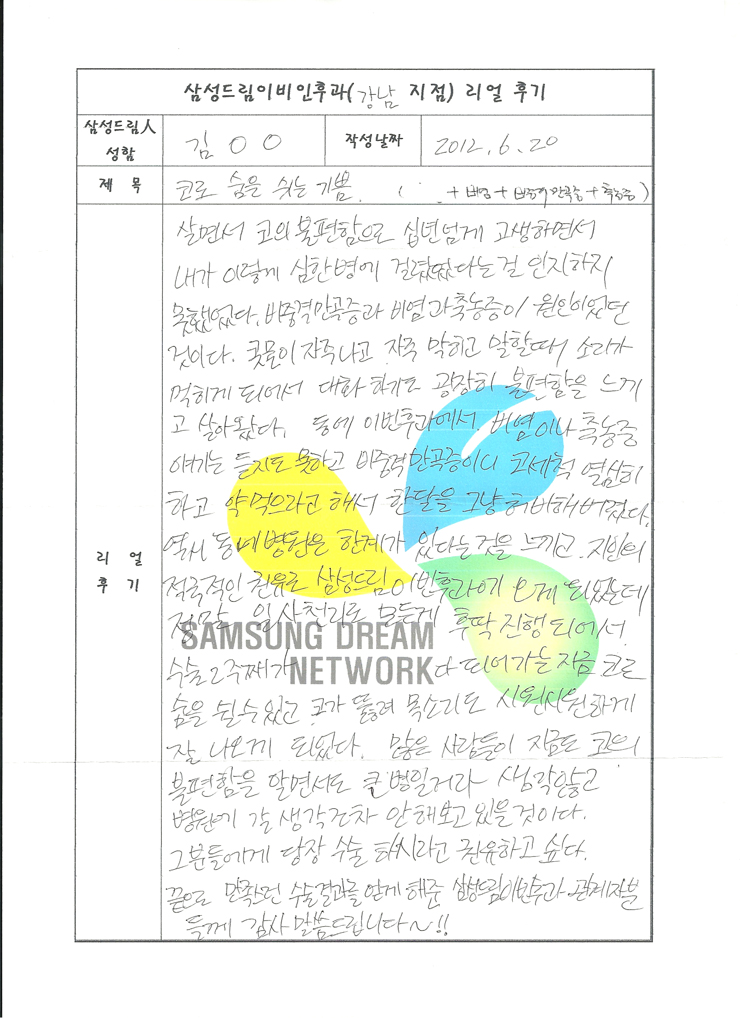 삼성드림이비인후과(강남 지점) 리얼 후기
삼성드림人 성함
김 ○ ○
작성날짜
2012. 6. 20
제 목
코로 숨을 쉬는 기쁨. ( + 비염 + 비중격만곡증 + 축농증)
리 얼 후 기
살면서 코의 불편함으로 십년넘게 고생하면서
내가 이렇게 심한병에 걸렸었다는걸 인지하지
못했었다. 비중격만곡증과 비염과 축농증이 원인이었던
것이다. 콧물이 자주나고 자주 막히고 말할때 소리가
먹히게 되에서 대화 하기도 굉장히 불편함을 느끼
고 살아왔다. 동에 이빈후과에서 비염이나 축농증
얘기는 듣지도 못하고 비중격만곡증이니 코세척 열심히
하고 약먹으라고 해서 한달을 그냥 허비해버렸다.
역시 동네병원은 한계가 있다는것을 느끼고 지인의
적극적인 권유로 삼성드림이빈후과에 오게 되었는데
정말 일사천리로 모든게 후딱 진행되에서
SAMSUNG DREAM
NETWORK
수술2주째가 다 되어가는 지금 코로
숨을 쉴수있고 코가 뚫려 목소리도 시원시원하게
잘 나오게 되었다. 많은 사람들이 지금도 코의
불편함을 알면서도 큰병일거라 생각않고
병원에 갈 생각조차 안해보고 있을것이다.
그분들에게 당장 수술 하시라고 권유하고 싶다.
끝으로 만족한 수술결과를 얻게 해준 삼성드림이빈후과 관계자분
들께 감사 말씀드립니다~!!